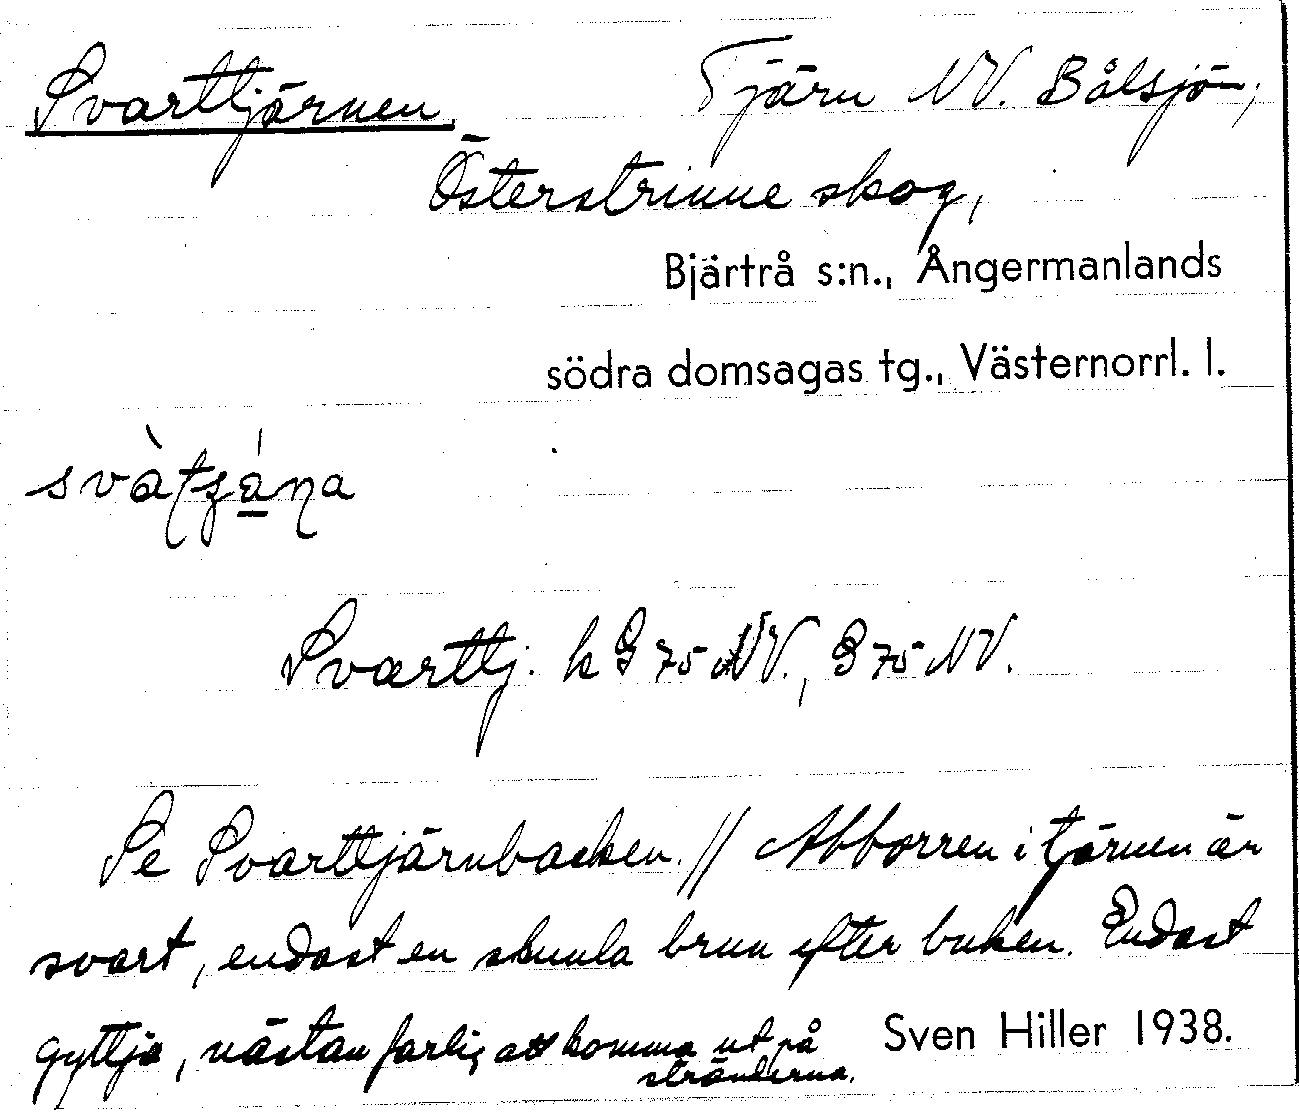 Svarttjärnen, Tjärn NV. Bålsjön,
Österstrinne skog,
Bjärtrå s:n., Ångermanlands
södra domsagas tg., Västernorrl. l.
Svarttj. k G 75 NV., G 75 NV.
Se Svarttjärnbacken. // Abborren i tjärnen är
svart, endast en skumla brun efter buken. Endast
gyttja, nästan farlig att komma ut på
stränderna.
Sven Hiller 1938.